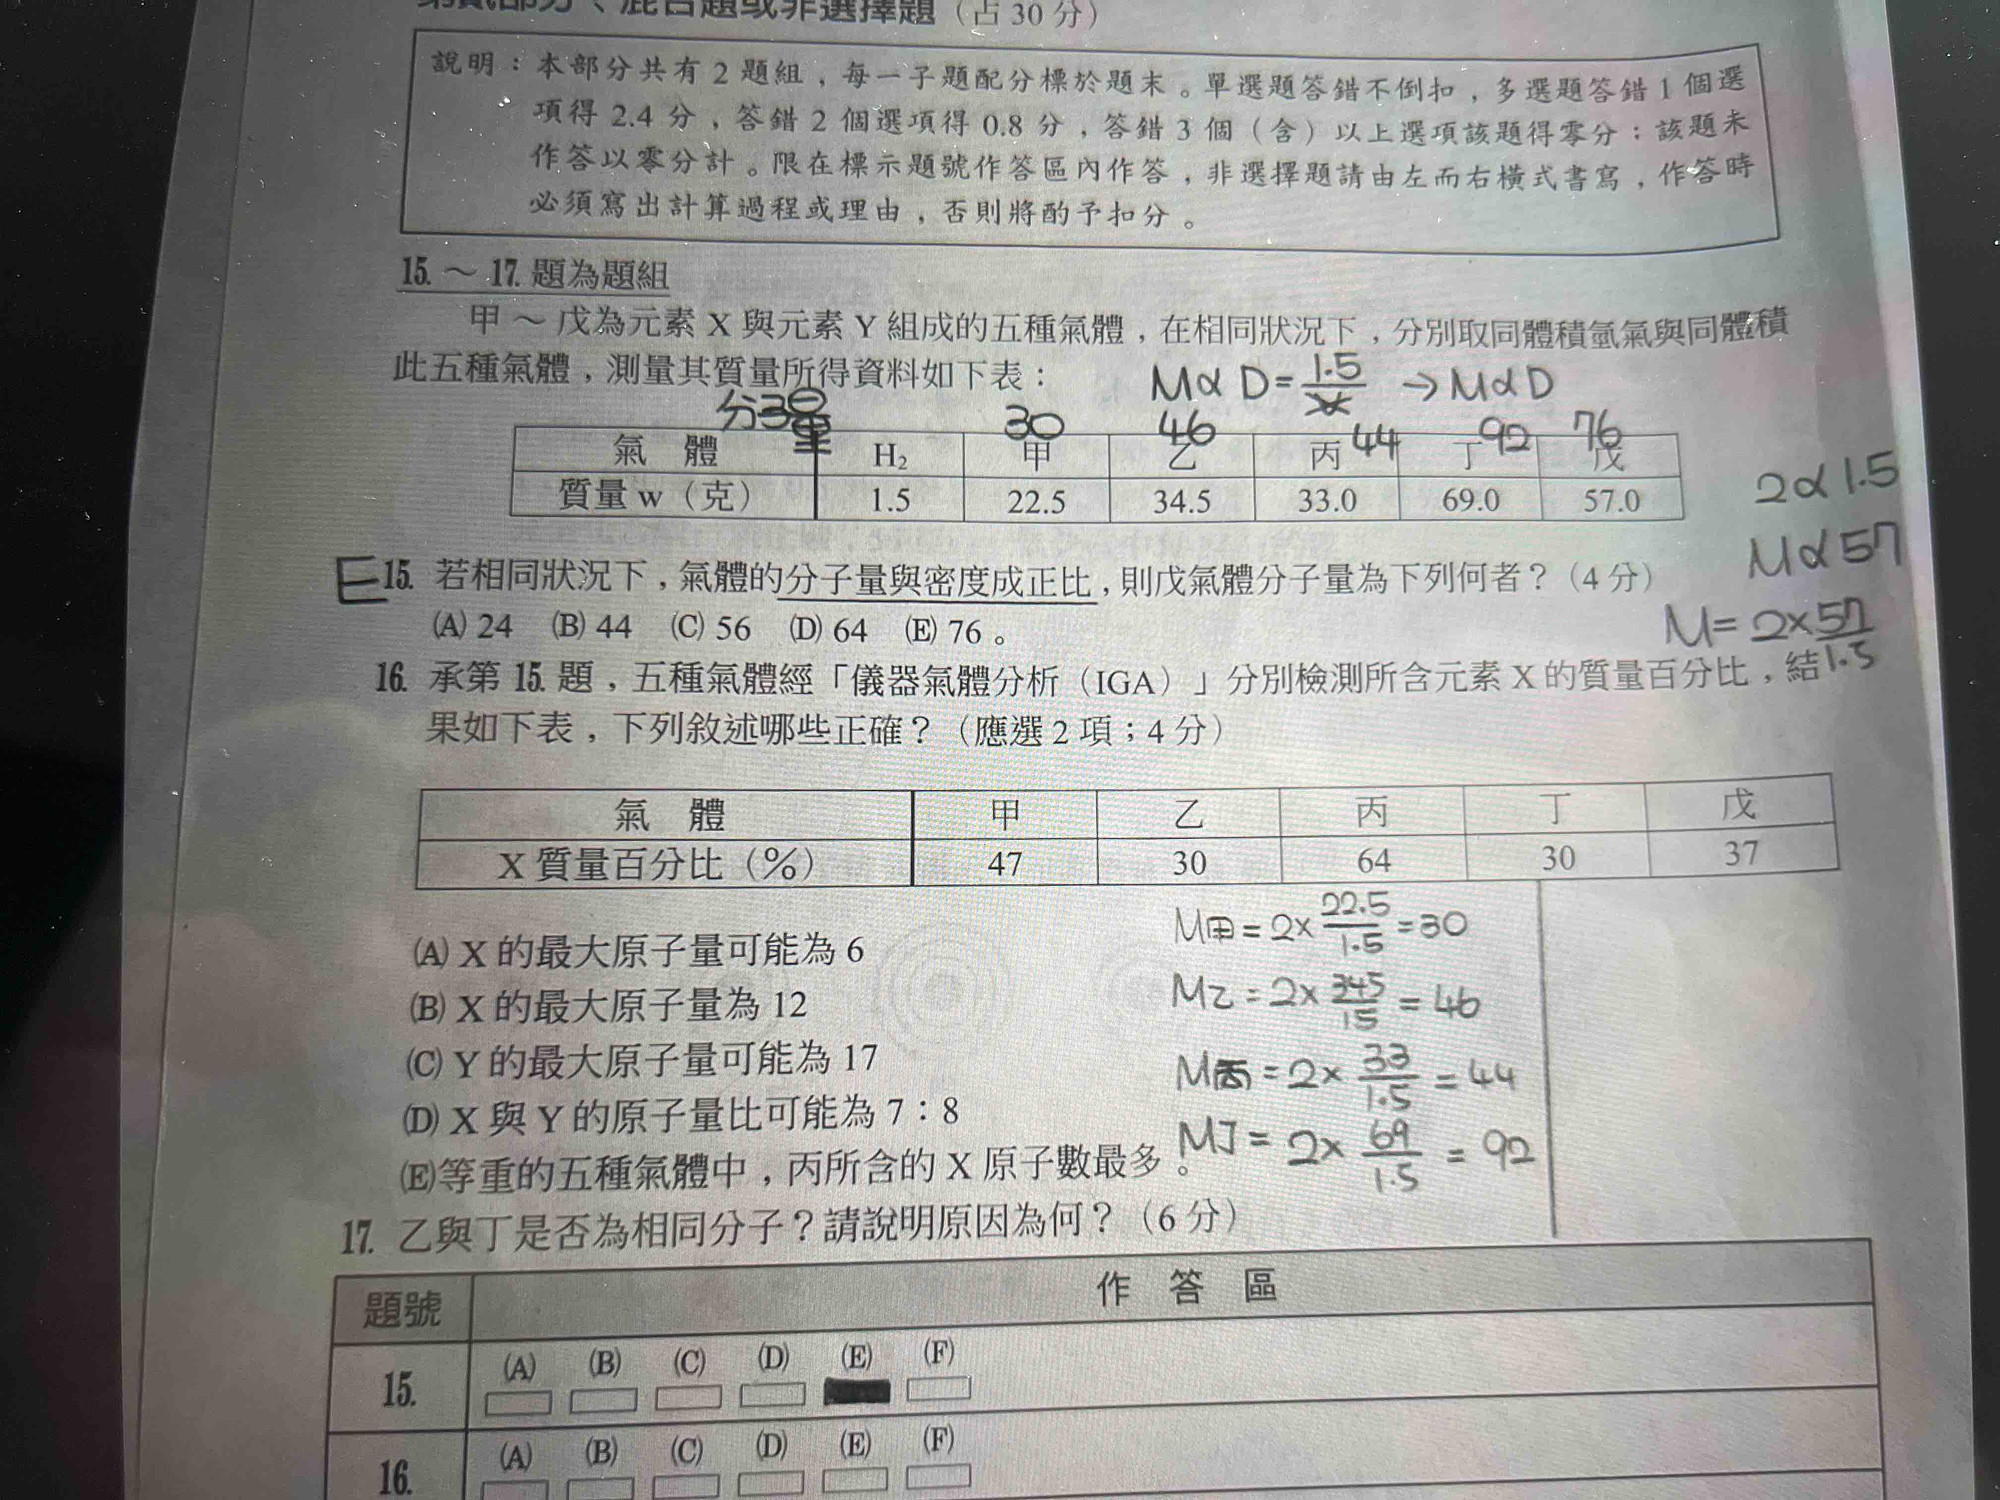 第貳部分、混合題或非選擇題（占 30 分）
說明：本部分共有 2 題組，每一子題配分標於題末。單選題答錯不倒扣，多選題答錯 1 個選
項得 2.4 分，答錯 2 個選項得 0.8 分，答錯 3 個（含）以上選項該題得零分；該題未
作答以零分計。限在標示題號作答區內作答，非選擇題請由左而右橫式書寫，作答時
必須寫出計算過程或理由，否則將酌予扣分。
15. ～ 17. 題為題組
甲～戊為元素 X 與元素 Y 組成的五種氣體，在相同狀況下，分別取同體積氫氣與同體積
此五種氣體，測量其質量所得資料如下表：
M∝D=1.5/V → M∝D
分子量 30 46 44 92 76
氣 體 H₂ 甲 乙 丙 丁 戊
質量 w（克） 1.5 22.5 34.5 33.0 69.0 57.0
2∝1.5
M∝57
M=2×57/1.5
E 15. 若相同狀況下，氣體的分子量與密度成正比，則戊氣體分子量為下列何者？（4 分）
(A) 24 (B) 44 (C) 56 (D) 64 (E) 76。
16. 承第 15. 題，五種氣體經「儀器氣體分析（IGA）」分別檢測所含元素 X 的質量百分比，結
果如下表，下列敘述哪些正確？（應選 2 項；4 分）
氣 體 甲 乙 丙 丁 戊
X 質量百分比（%） 47 30 64 30 37
(A) X 的最大原子量可能為 6
(B) X 的最大原子量為 12
(C) Y 的最大原子量可能為 17
(D) X 與 Y 的原子量比可能為 7：8
(E)等重的五種氣體中，丙所含的 X 原子數最多。
M甲=2×22.5/1.5=30
M乙=2×345/15=46
M丙=2×33/1.5=44
M丁=2×69/1.5=92
17. 乙與丁是否為相同分子？請說明原因為何？（6 分）
題號 作 答 區
15. (A) (B) (C) (D) (E) (F)
16. (A) (B) (C) (D) (E) (F)